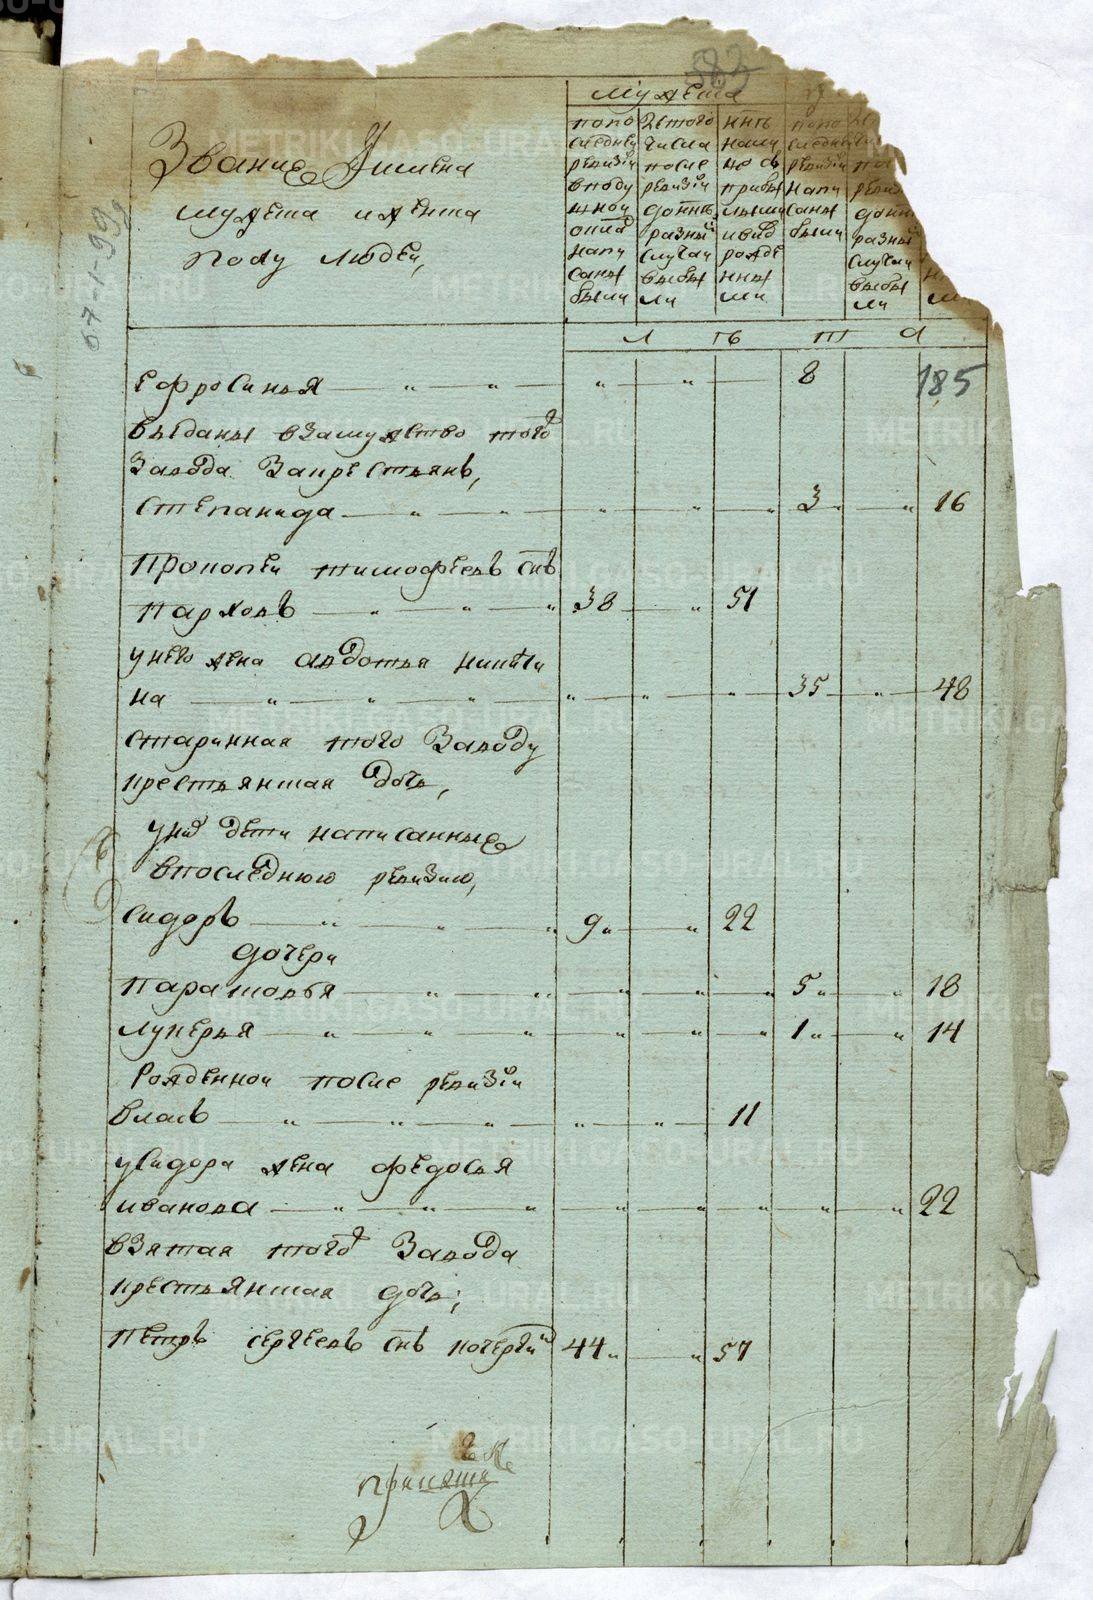 583
67-1-99
Звание Имена
мужеска и женска
полу людеи,
Мужеска
попо
следнеи
ревизiи
вподу
шнои
оклад
напи
саны
были
Из того
числа
после
ревизiи
до ннѣ
разныи
случаи
выбы
ли
ннѣ
нали
цо съ
прибы
лыми
и внов
рожде
нны
ми
попо
следнеи
ревизiи
напи
саны
были
после
ревизiи
до ннѣ
разныи
случаи
выбы
ли
л ѣ т а
Ефросинья 8 185
выданы взамужство того
завода закрестьянъ,
степанида 3 16
прокопеи тимофеевъ снъ
парховъ 38 51
у него жена авдотья никити
на 35 48
старинная того заводу
крестьянская дочь,
у них дети написанные
в последнюю ревизию,
сидоръ 9 22
дочери
парасковья 5 18
лукерья 1 14
рожденнои после ревизiи
власъ 11
у сидора жена федосья
иванова 22
взятая того завода
крестьянская дочь;
петръ сергеевъ снъ кочергин 44 57